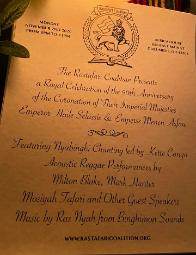 MONDAY
The Rastafari Coalition Presents
a Royal Celebration of the 90th Anniversary
of the Coronation of Their Imperial Majesties
Emperor Haile Selassie & Empress Menen Asfaw
Featuring Nyabinghi Chanting led by
Acoustic Reggae Performances by
Milton Blake, Mark
Mosiyah Tafari and Other Guest Speakers
Music by Ras Nyah from Binghimon Sounds
WWW.RASTAFARICOALITION.ORG